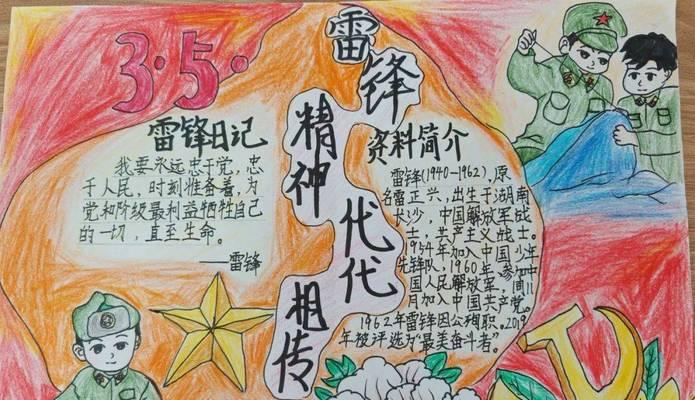 3·5·
雷锋
精神
代代
相传
雷锋日记
我要永远忠于党，忠
于人民，时刻准备着，为
党和阶级最利益牺牲自己
的一切，直至生命。
——雷锋
资料简介
雷锋(1940-1962)，原
名雷正兴，出生于湖南
长沙，中国解放军战
士，共产主义战士。
1954年加入中国少年
先锋队，1960年参加中
国人民解放军，同11
月加入中国共产党。
1962年雷锋因公殉职。2019
年被评选为“最美奋斗者”。